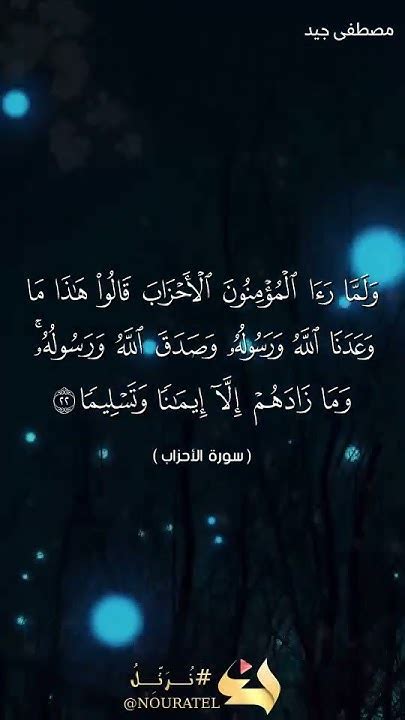 مصطفى جيد
وَلَمَّا رَءَا ٱلْمُؤْمِنُونَ ٱلْأَحْزَابَ قَالُوا۟ هَـٰذَا مَا
وَعَدَنَا ٱللَّهُ وَرَسُولُهُۥ وَصَدَقَ ٱللَّهُ وَرَسُولُهُۥۚ
وَمَا زَادَهُمْ إِلَّآ إِيمَـٰنًا وَتَسْلِيمًا ٢٢
( سورة الأحزاب )
#نُرَتِّلُ
@NOURATEL